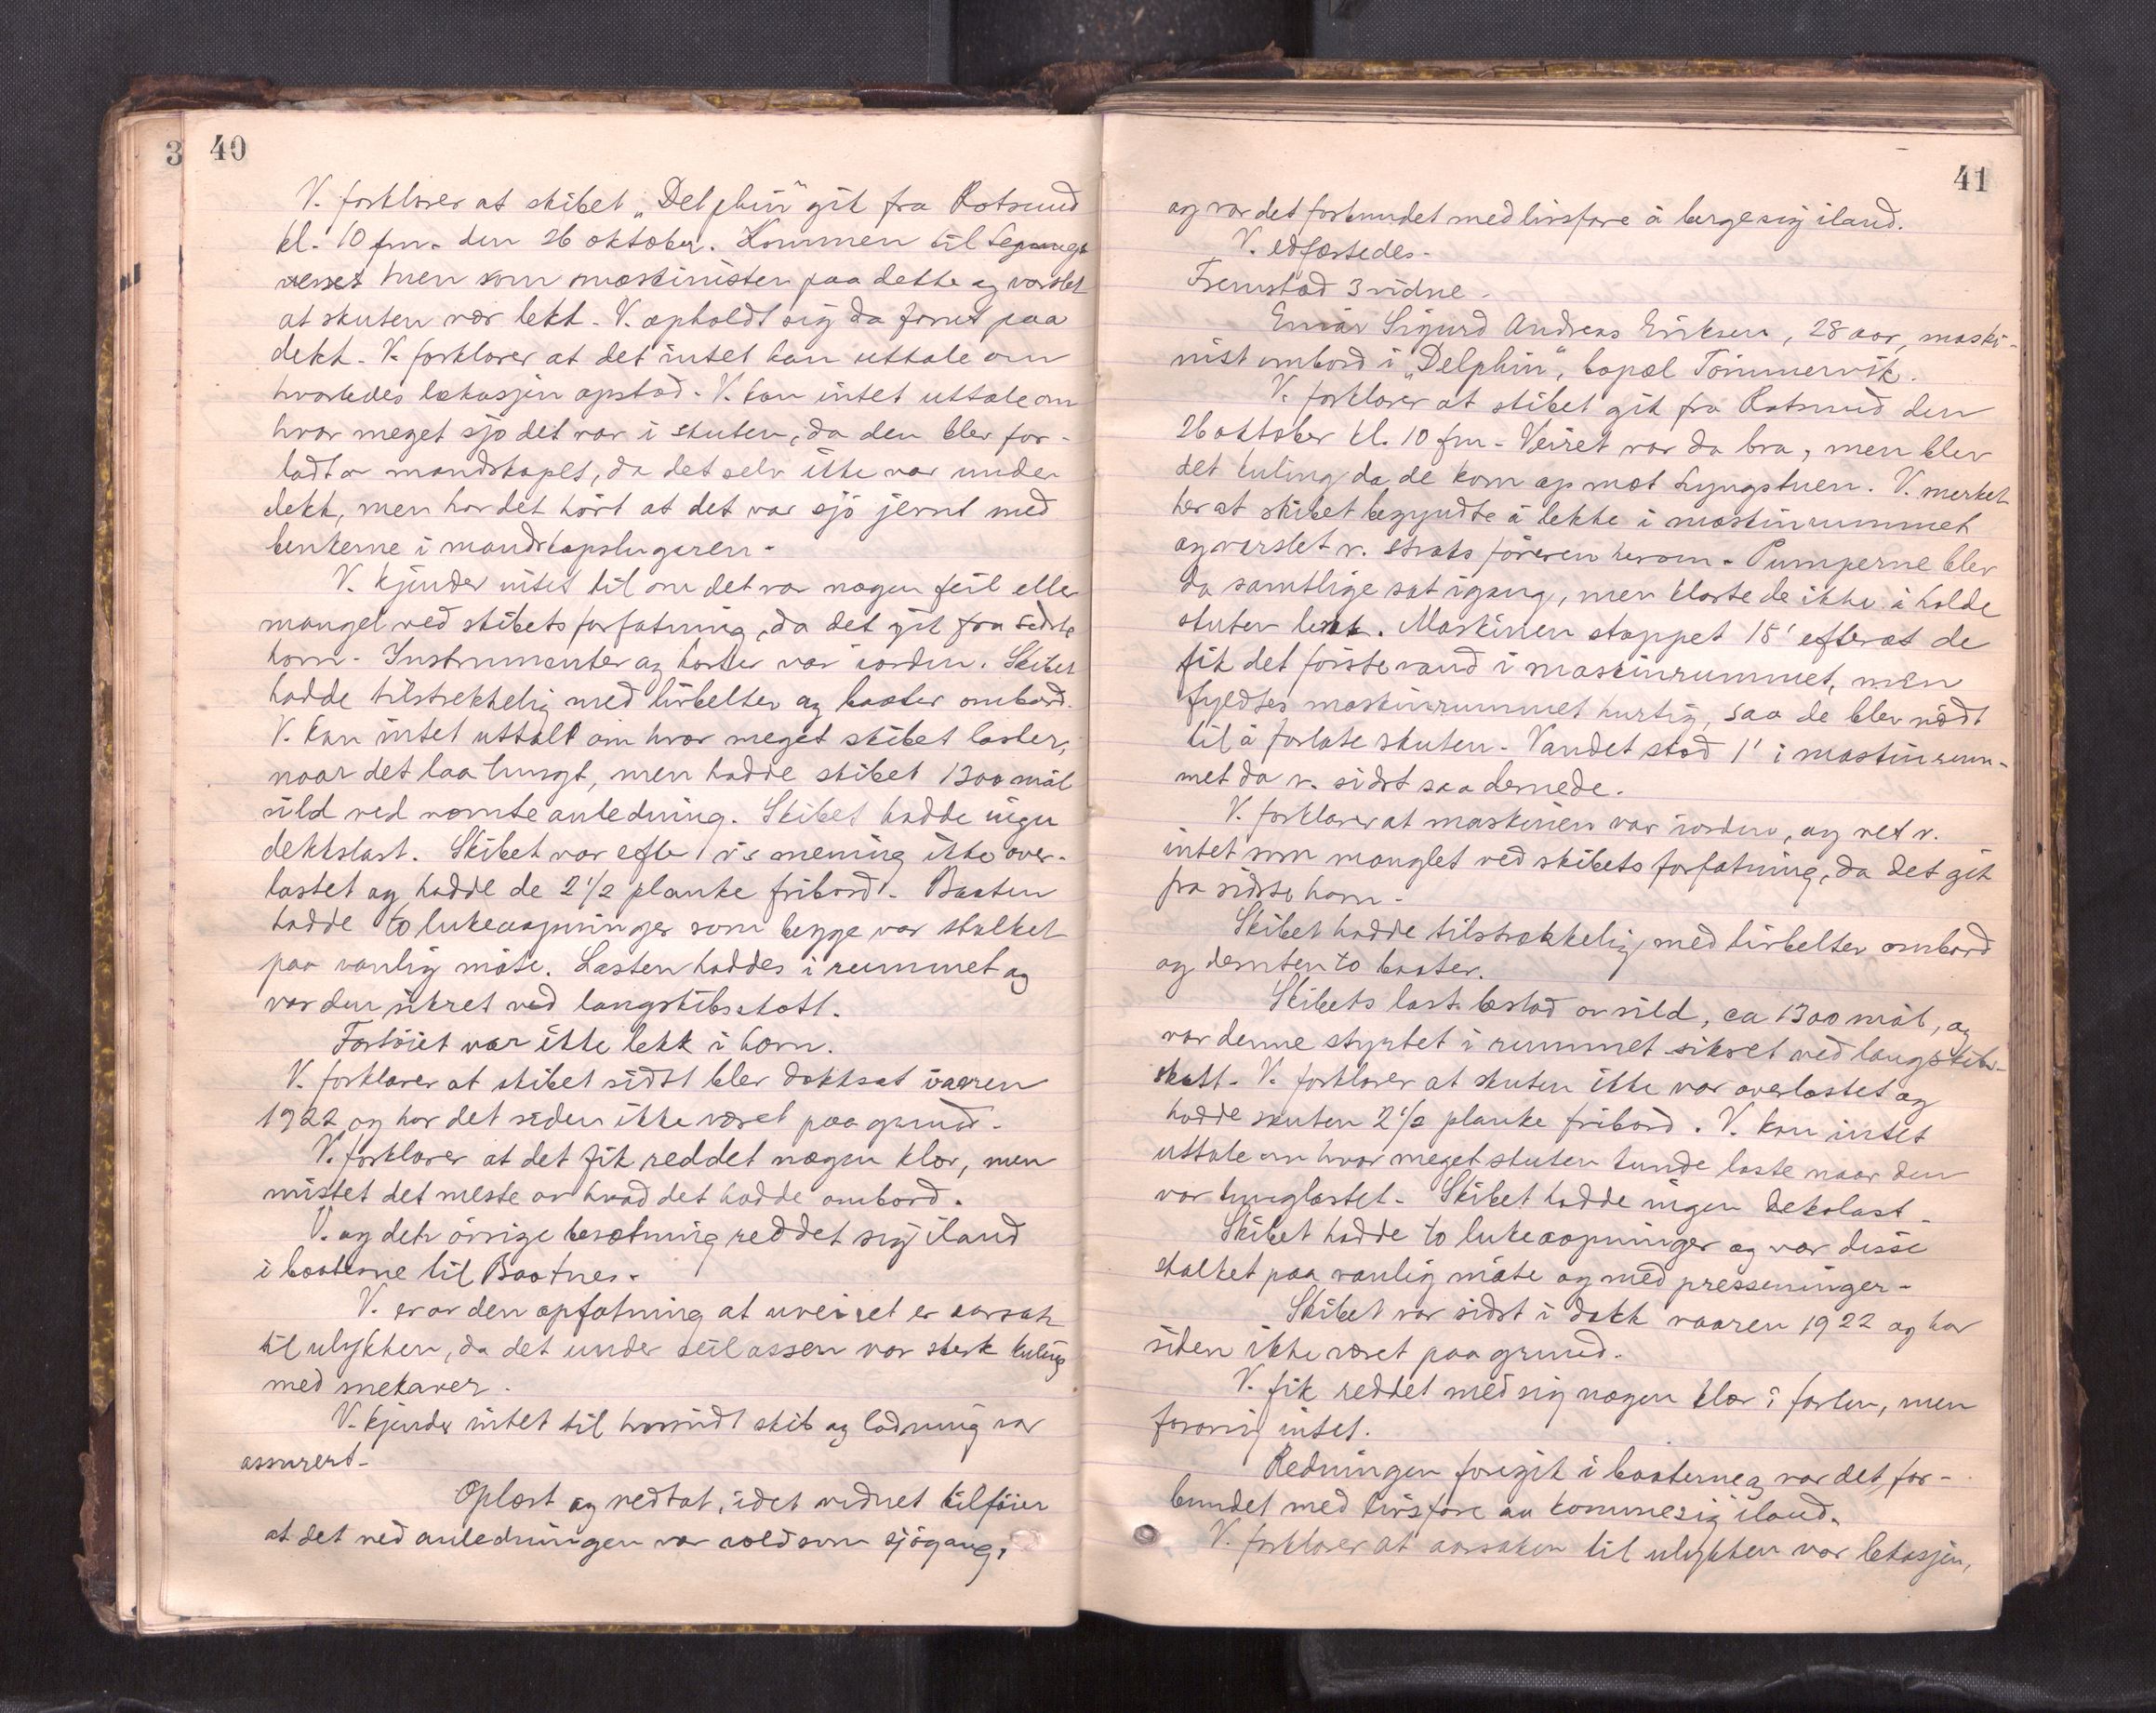 40
V. forklarer at skibet „Delphin" gik fra Rotsund
kl. 10 fm. den 26 oktober. Kommen til
men kom maskinisten paa dekke og varslet
at skuten var lekk. V. opholdt sig da forut paa
dekk. V. forklarer at det intet kan uttale om
hvorledes lækasjen opstod. V. kan intet uttale om
hvor meget sjø det var i skuten, da den blev for-
ladt av mandskapet, da det selv ikke var under
dekk, men har det hört at det var sjö jevnt med
benkerne i mandskapslugaren.
V. kjender intet til om det var nogen feil eller
mangel ved skibets forfatning, da det gik fra sidste
havn. Instrumenter og karter var iorden. Skibet
hadde tilstrekkelig med livbelter og baater ombord.
V. kan intet uttale om hvor meget skibet laster,
naar det laa tungt, men hadde skibet 1300 mål
sild ved nevnte anledning. Skibet hadde ingen
dekkslast. Skibet var efter v's mening ikke over-
lastet og hadde de 2 1/2 planke fribord. Baaten
hadde to lukeaapninger som begge var skalket
paa vanlig måte. Lasten haddes i rummet og
var den sikret ved langskibsskott.
Fartöiet var ikke lekk i havn.
V. forklarer at skibet sidst blev dokksat vaaren
1922 og har det siden ikke været paa grund.
V. forklarer at det fik reddet nogen klær, men
mistet det meste av hvad det hadde ombord.
V. og den övrige besætning reddet sig iland
i baaterne til Baatnes.
V. er av den opfatning at uveiret er aarsak
til ulykken, da det under seilassen var sterk kuling
med snekaver.
V. kjender intet til hvorvidt skib og ladning var
assurert.
Oplæst og vedtat, idet vidnet tilföier
at det ved anledningen var voldsom sjögang,
41
og var det forbundet med livsfare å berge sig iland.
V. edfæstedes.
Fremstod 3 vidne.
Einar Sigurd Andreas Eriksen, 28 aar, maski-
nist ombord i „Delphin", bopæl Tömmervik.
V. forklarer at skibet gik fra Rotsund den
26 oktober kl. 10 fm. Veiret var da bra, men blev
det kuling da de kom op mot Lyngstuen. V. merket
her at skibet begyndte å lekke i maskinrummet
og varslet v. straks föreren herom. Pumperne blev
da samtlige sat igang, men klarte de ikke å holde
skuten lens. Maskinen stoppet 15' efterat de
fik det förste vand i maskinrummet, men
fyldtes maskinrummet hurtig, saa de blev nödt
til å forlate skuten. Vandet stod 1' i maskinrum-
met da v. sidst saa dernede.
V. forklarer at maskinen var iorden, og vet v.
intet som manglet ved skibets forfatning, da det gik
fra sidste havn.
Skibet hadde tilstrækkelig med livbelter ombord
og desuten to baater.
Skibets last bestod av sild, ca 1300 mål, og
var denne styrtet i rummet sikret ved langskibs-
skott. V. forklarer at skuten ikke var overlastet og
hadde skuten 2 1/2 planke fribord. V. kan intet
uttale om hvor meget skuten kunde laste naar den
var tunglastet. Skibet hadde ingen dekslast.
Skibet hadde to lukeaapninger og var disse
skalket paa vanlig måte og med presseninger.
Skibet var sidst i dokk vaaren 1922 og har
siden ikke været paa grund.
V. fik reddet med sig nogen klær i farten, men
forövrig intet.
Redningen foregik i baaterne og var det for-
bundet med livsfare au komme sig iland.
V. forklarer at aarsaken til ulykken var lekasjen,